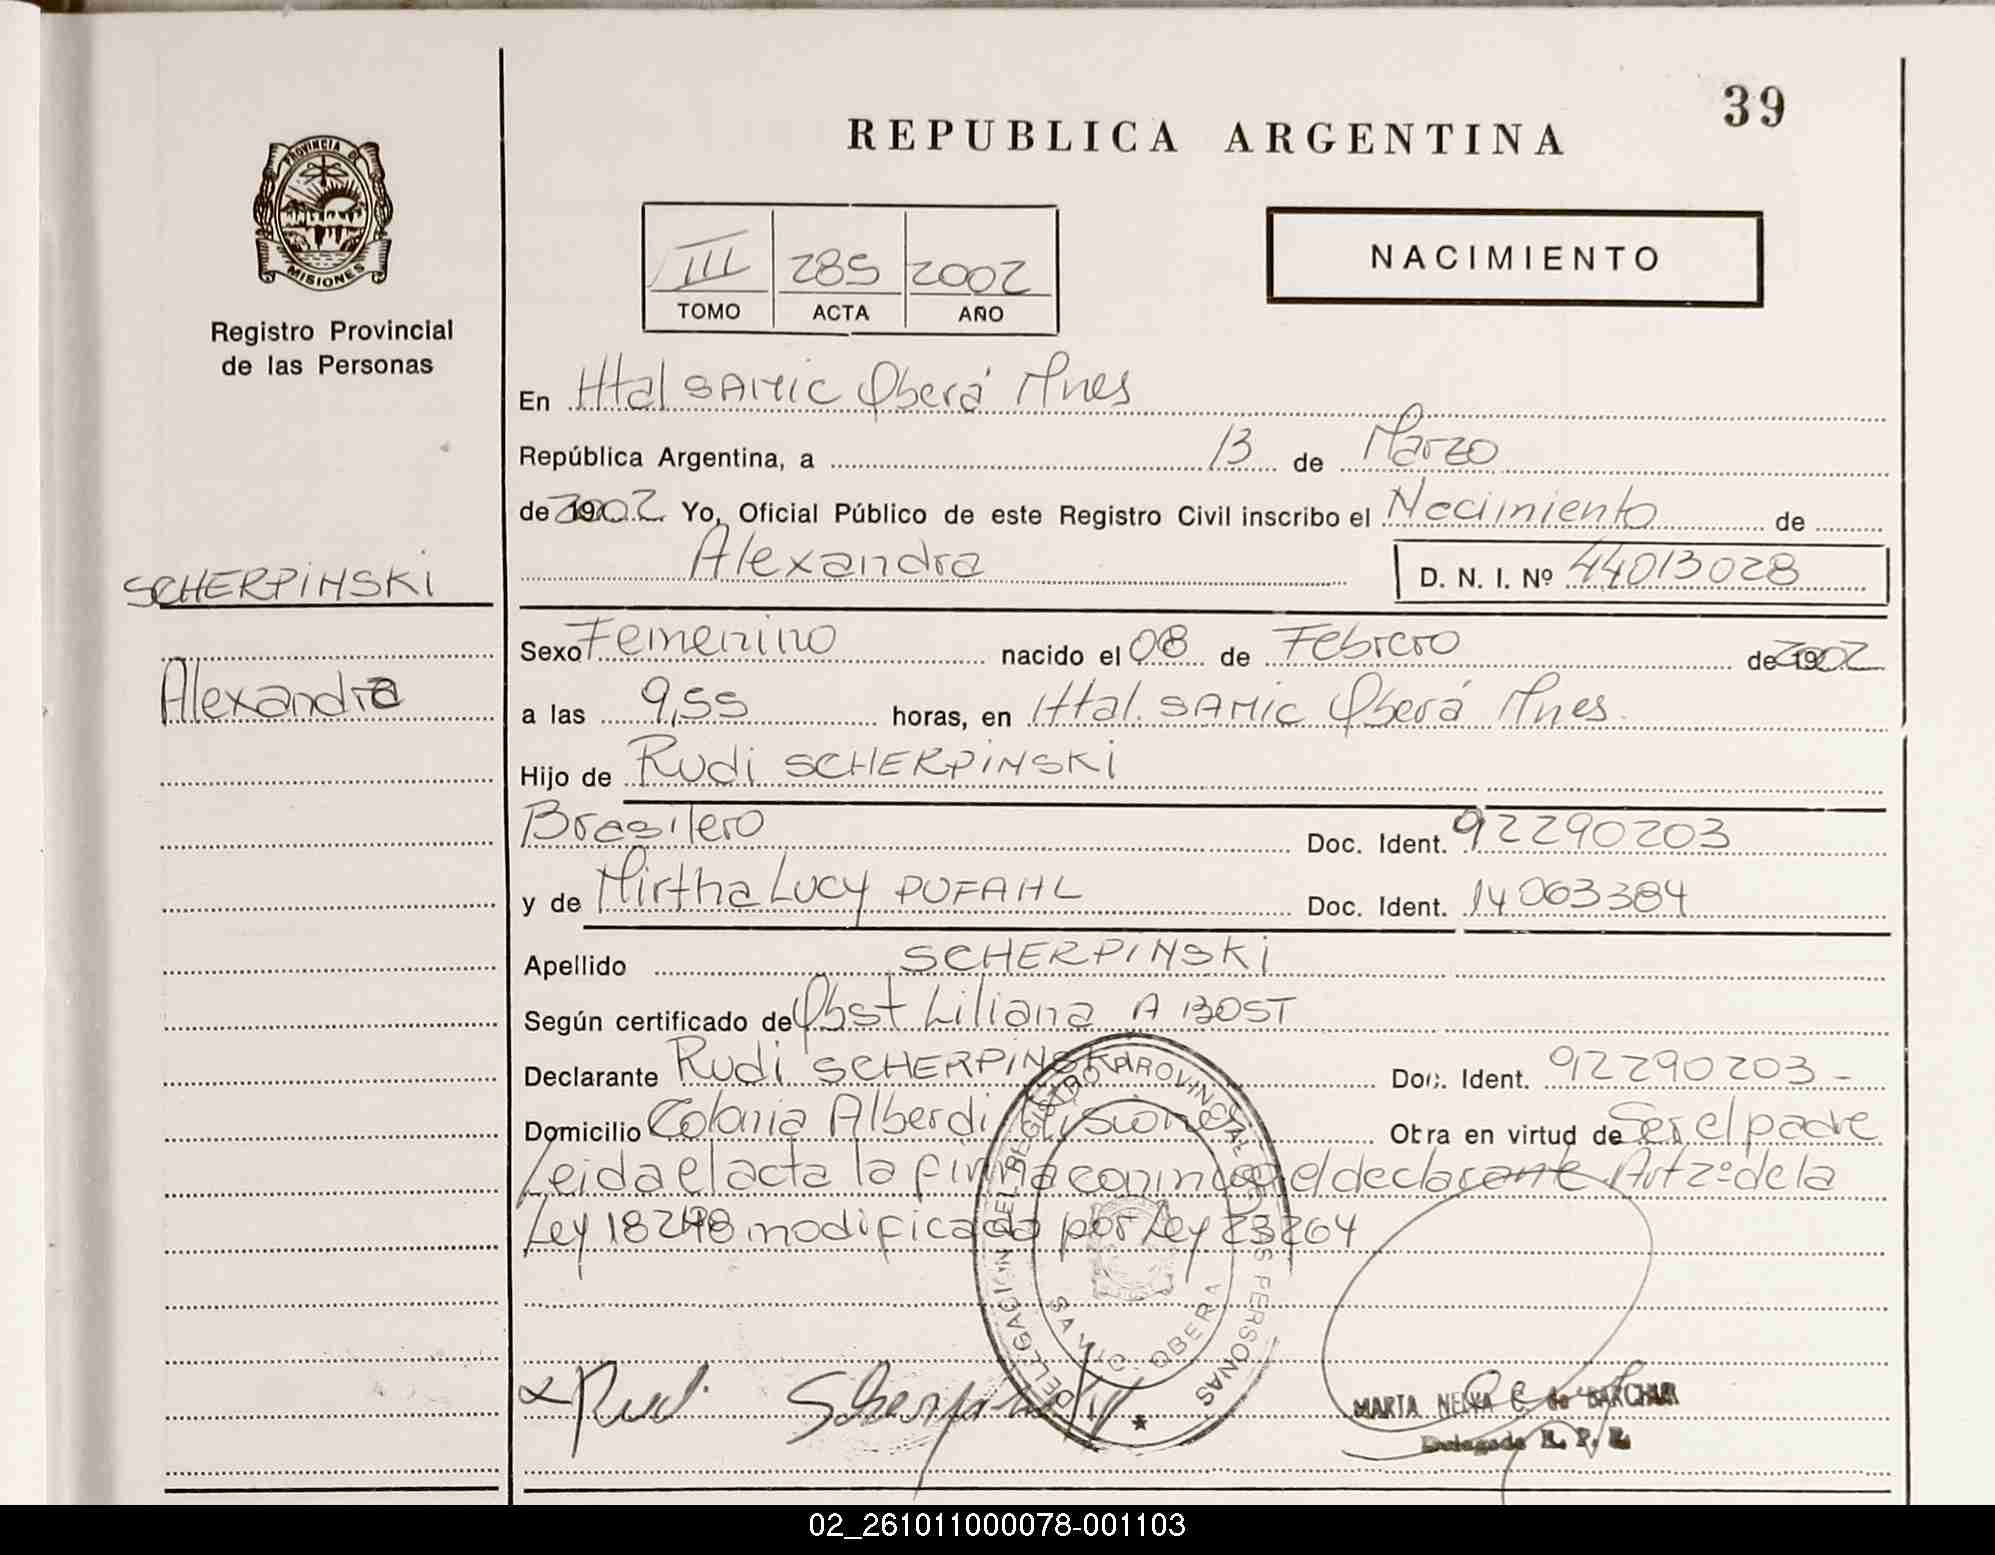 39
REPUBLICA ARGENTINA
PROVINCIA DE
MISIONES
Registro Provincial
de las Personas
III 285 2002
TOMO ACTA AÑO
NACIMIENTO
En Htal SAMIC Oberá Mnes
República Argentina, a 13 de Marzo
de 2002 Yo, Oficial Público de este Registro Civil inscribo el Nacimiento de
Alexandra D. N. I. Nº 44013028
SCHERPINSKI
Alexandra
Sexo Femenino nacido el 08 de Febrero de 2002
a las 9,55 horas, en Htal. SAMIC Oberá Mnes.
Hijo de Rudi SCHERPINSKI
Brasilero Doc. Ident. 92290203
y de Mirtha Lucy PUFAHL Doc. Ident. 14063384
Apellido SCHERPINSKI
Según certificado de Obst Liliana A BOST
Declarante Rudi SCHERPINSKI Doc. Ident. 92290203-
Domicilio Colonia Alberdi Misiones Obra en virtud de Ser el padre
Leida el acta la firma conmigo el declarante Art 2º de la
Ley 18248 modificado por Ley 23264
DELEGACION DEL REGISTRO PROVINCIAL DE LAS PERSONAS
SAMIC OBERA
Rudi Scherpinski
MARTA NELVA C. de
Delegada R. P. P.
02_261011000078-001103